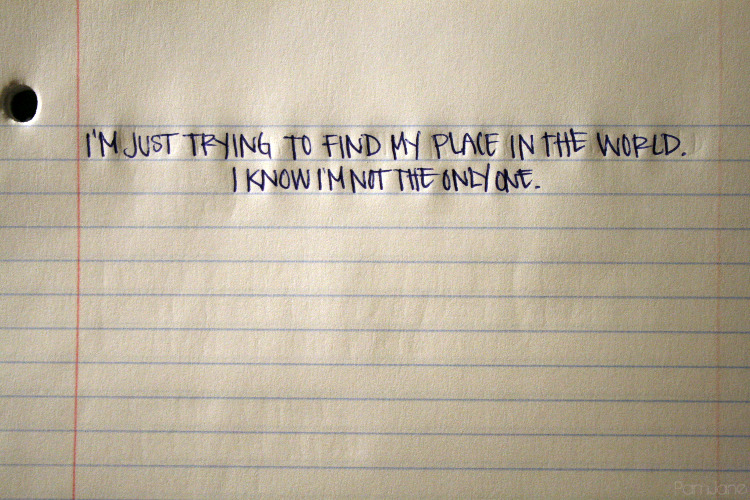 I'M JUST TRYING TO FIND MY PLACE IN THE WORLD.
I KNOW I'M NOT THE ONLY ONE.
PamJane